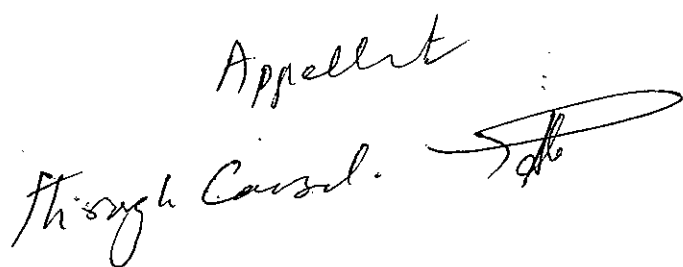 Appellant
Through Counsel.